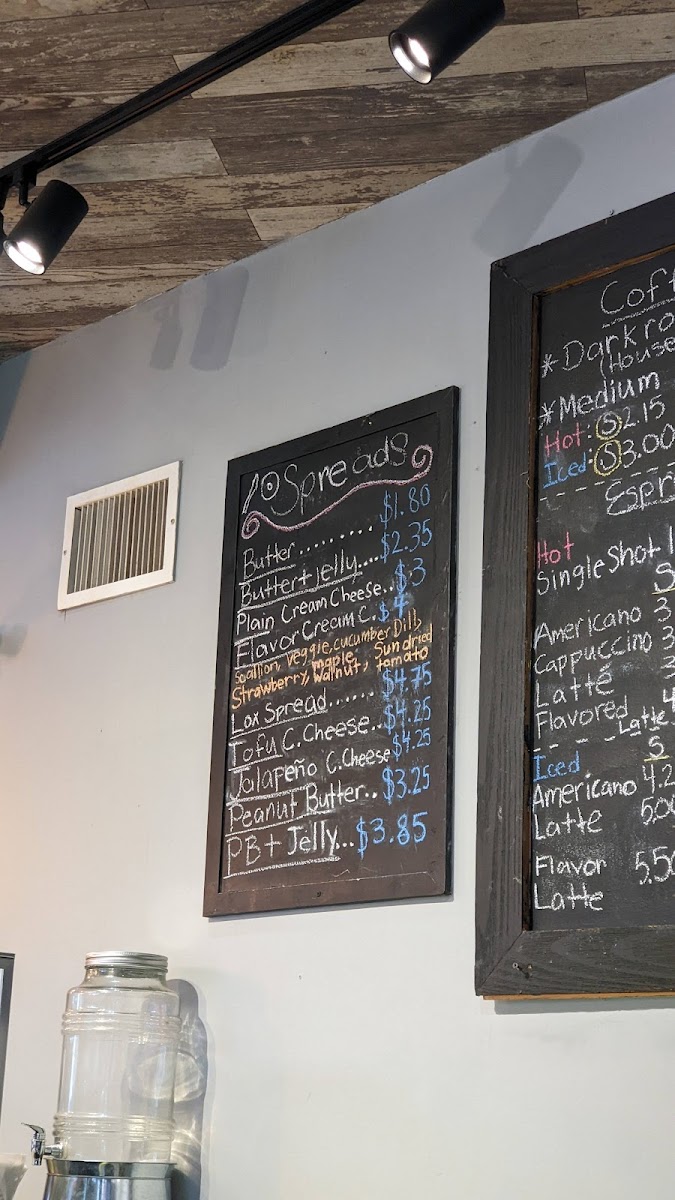 Spreads
Butter......... $1.80
Butter+jelly..... $2.35
Plain Cream Cheese.. $3
Flavor Cream C. $4
Scallion, Veggie, cucumber Dill,
Strawberry, maple walnut, Sundried tomato
Lox Spread...... $4.75
Tofu C. Cheese.. $4.25
Jalapeño C. Cheese $4.25
Peanut Butter.. $3.25
PB+ Jelly... $3.85
*Dark
(House
*Medium
Hot: S 2.15
Iced: S 3.00
Hot
Single Shot
S
Americano 3
Cappuccino 3
Latté 3
Flavored Latte 4
Iced S
Americano 4.2
Latte 5.00
Flavor Latte 5.50